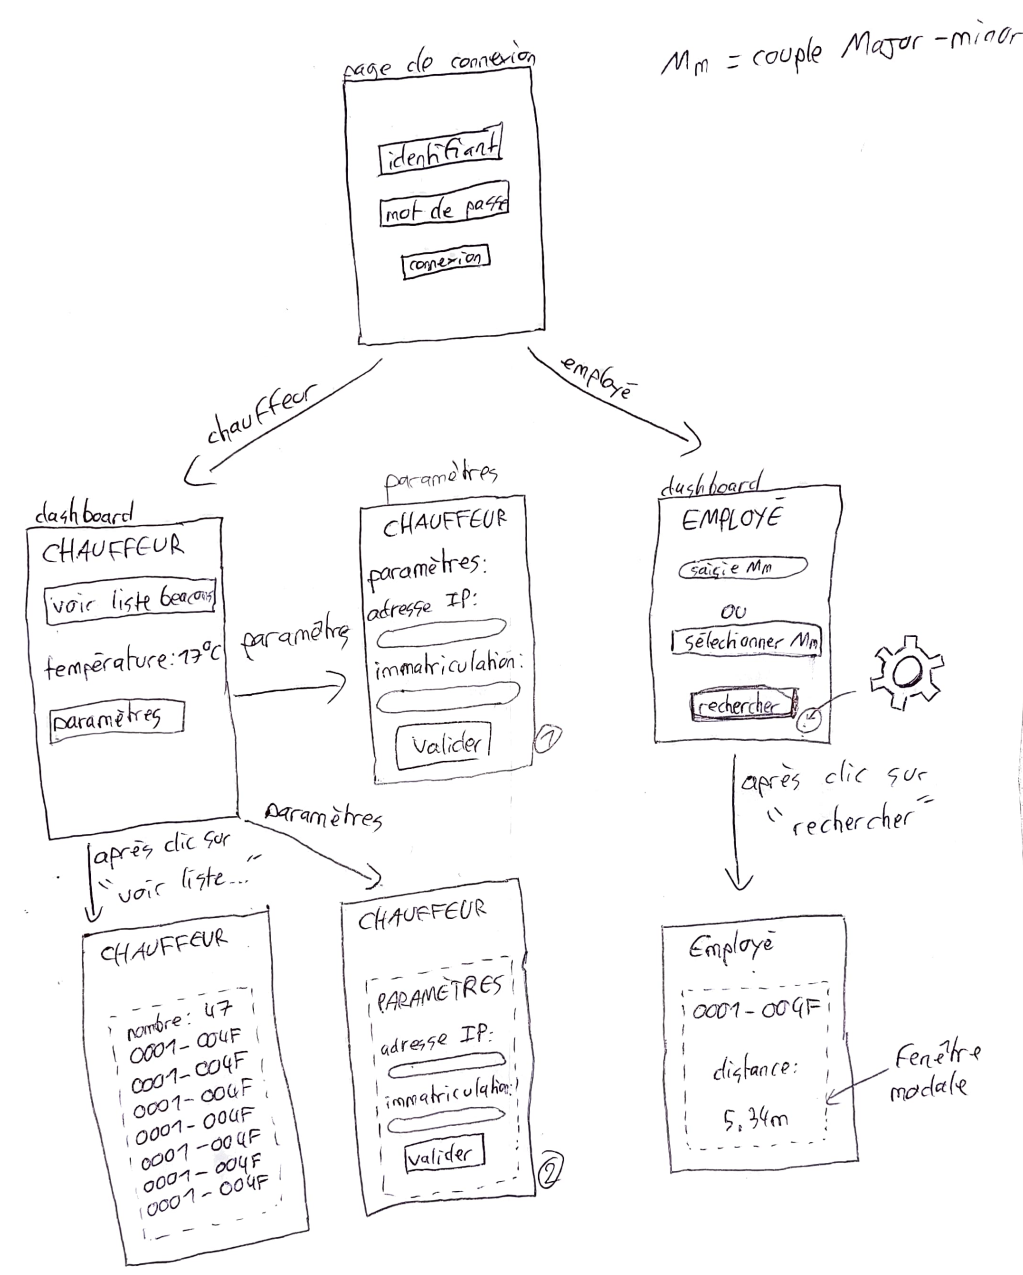 Mm = couple Major-minor
page de connexion
identifiant
mot de passe
connexion
chauffeur
employé
dashboard
CHAUFFEUR
voir liste beacons
température: 17°C
paramètres
paramètres
paramètres
CHAUFFEUR
paramètres:
adresse IP:
immatriculation:
valider
1
dashboard
EMPLOYÉ
saisie Mm
OU
sélectionner Mm
rechercher
après clic sur
"rechercher"
paramètres
après clic sur
"voir liste..."
CHAUFFEUR
nombre: 47
0001-004F
0001-004F
0001-004F
0001-004F
0001-004F
0001-004F
0001-004F
CHAUFFEUR
PARAMÈTRES
adresse IP:
immatriculation:
valider
2
Employé
0001-004F
distance:
5.34m
Fenêtre
modale